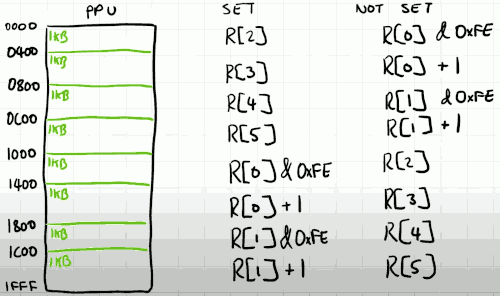 PPU SET NOT SET
0000 1KB R[2] R[0] & 0xFE
0400 1KB R[3] R[0] + 1
0800 1KB R[4] R[1] & 0xFE
0C00 1KB R[5] R[1] + 1
1000 1KB R[0] & 0xFE R[2]
1400 1KB R[0] + 1 R[3]
1800 1KB R[1] & 0xFE R[4]
1C00 1KB R[1] + 1 R[5]
1FFF